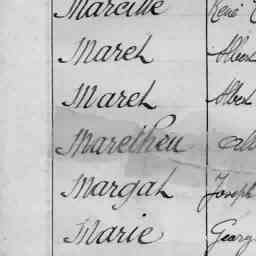 Marcille René
Maret Albert
Maret Albert
Mareiheu
Margat Joseph
Marie Georg